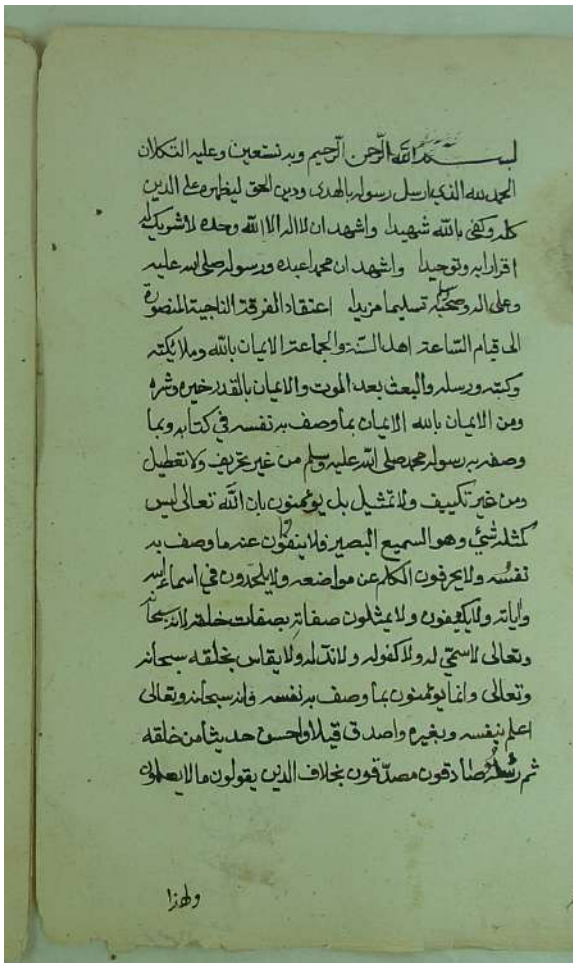 بسم الله الرحمن الرحيم وبه نستعين وعليه التكلان
الحمد لله الذي ارسل رسوله بالهدى ودين الحق ليظهره على الدين
كله وكفى بالله شهيدا واشهد ان لا اله الا الله وحده لا شريك له
اقرارا به وتوحيدا واشهد ان محمدا عبده ورسوله صلى الله عليه
وعلى اله وصحبه وسلم تسليما مزيدا اعتقاد الفرقة الناجية المنصورة
الى قيام الساعة اهل السنة والجماعة الايمان بالله وملائكته
وكتبه ورسله والبعث بعد الموت والايمان بالقدر خيره وشره
ومن الايمان بالله الايمان بما وصف به نفسه في كتابه وبما
وصفه به رسوله محمد صلى الله عليه وسلم من غير تحريف ولا تعطيل
ومن غير تكييف ولا تمثيل بل يؤمنون بان الله تعالى ليس
كمثله شيئ وهو السميع البصير فلا ينفون عنه ما وصف به
نفسه ولا يحرفون الكلم عن مواضعه ولا يلحدون في اسماء الله
واياته ولا يكيفون ولا يمثلون صفاته بصفات خلقه لانه سبحانه
وتعالى لا سمي له ولا كفو له ولا ند له ولا يقاس بخلقه سبحانه
وتعالى وانما يؤمنون بما وصف به نفسه فانه سبحانه وتعالى
اعلم بنفسه وبغيره واصدق قيلا واحسن حديثا من خلقه
ثم رسله صادقون مصدقون بخلاف الذين يقولون ما لا يعلمون
ولهذا